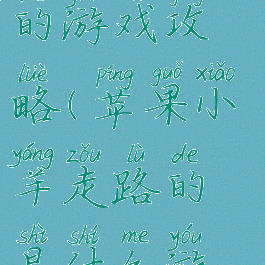 的游戏攻
lüè píng guǒ xiǎo
略(苹果小
yáng zǒu lù de
羊走路的
shì shí me yóu
是什么游